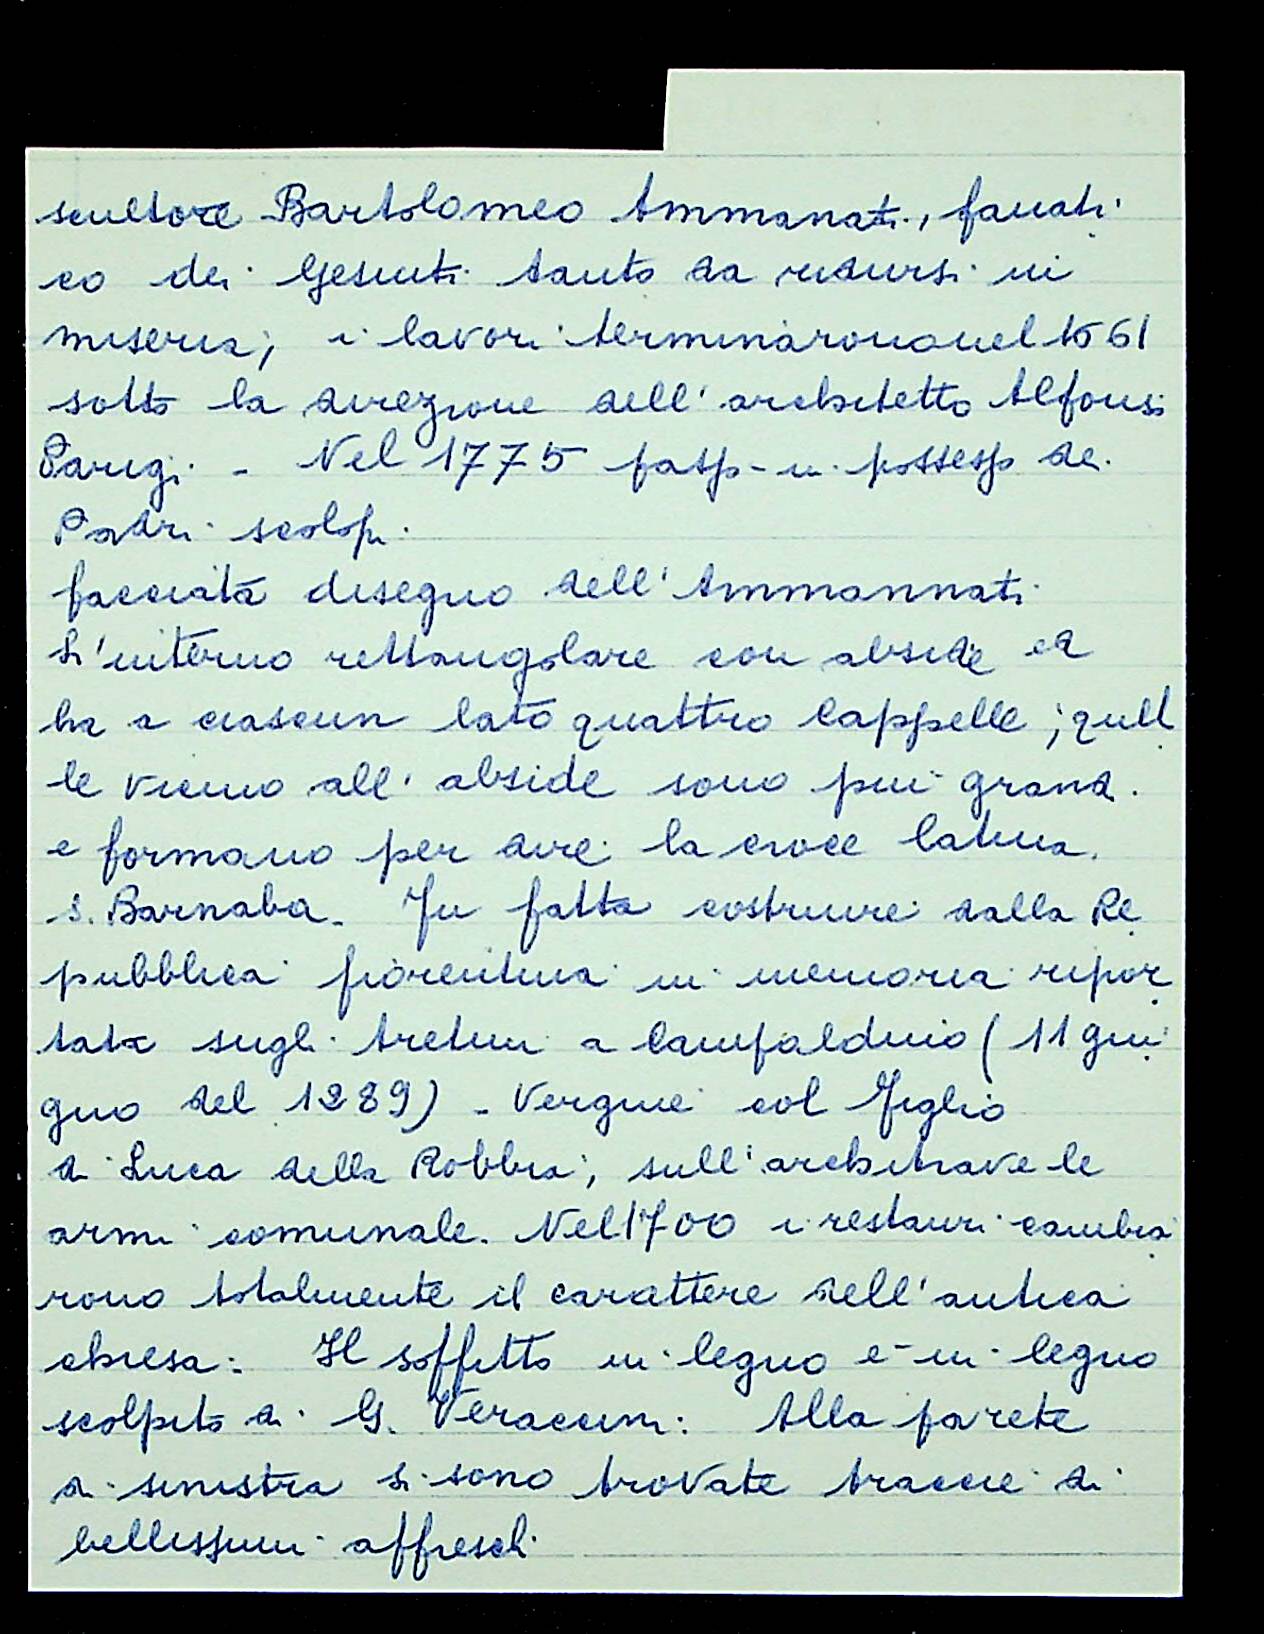 scultore Bartolomeo Ammanati, fanati
co dei Gesuiti tanto da ridursi in
miseria; i lavori terminarono nel 1661
sotto la direzione dell'architetto Alfonso
Parigi - Nel 1775 passò in possesso dei
Padri scolopi.
facciata disegno dell'Ammannati
L'interno rettangolare con abside ed
ha a ciascun lato quattro cappelle; quel
le vicino all'abside sono più grandi
e formano per dire la croce latina.
S. Barnaba. Fu fatta costruire dalla Re
pubblica fiorentina in memoria ripor
tata sugli Aretini a Campaldino (11 giu
gno del 1289) - Vergine col Figlio
di Luca della Robbia, sull'architrave le
armi comunale. Nel 1700 i restauri cambia
rono totalmente il carattere dell'antica
chiesa. Il soffitto in legno è in legno
scolpito di G. Veraccini. Alla parete
di sinistra si sono trovate traccie di
bellissimi affreschi